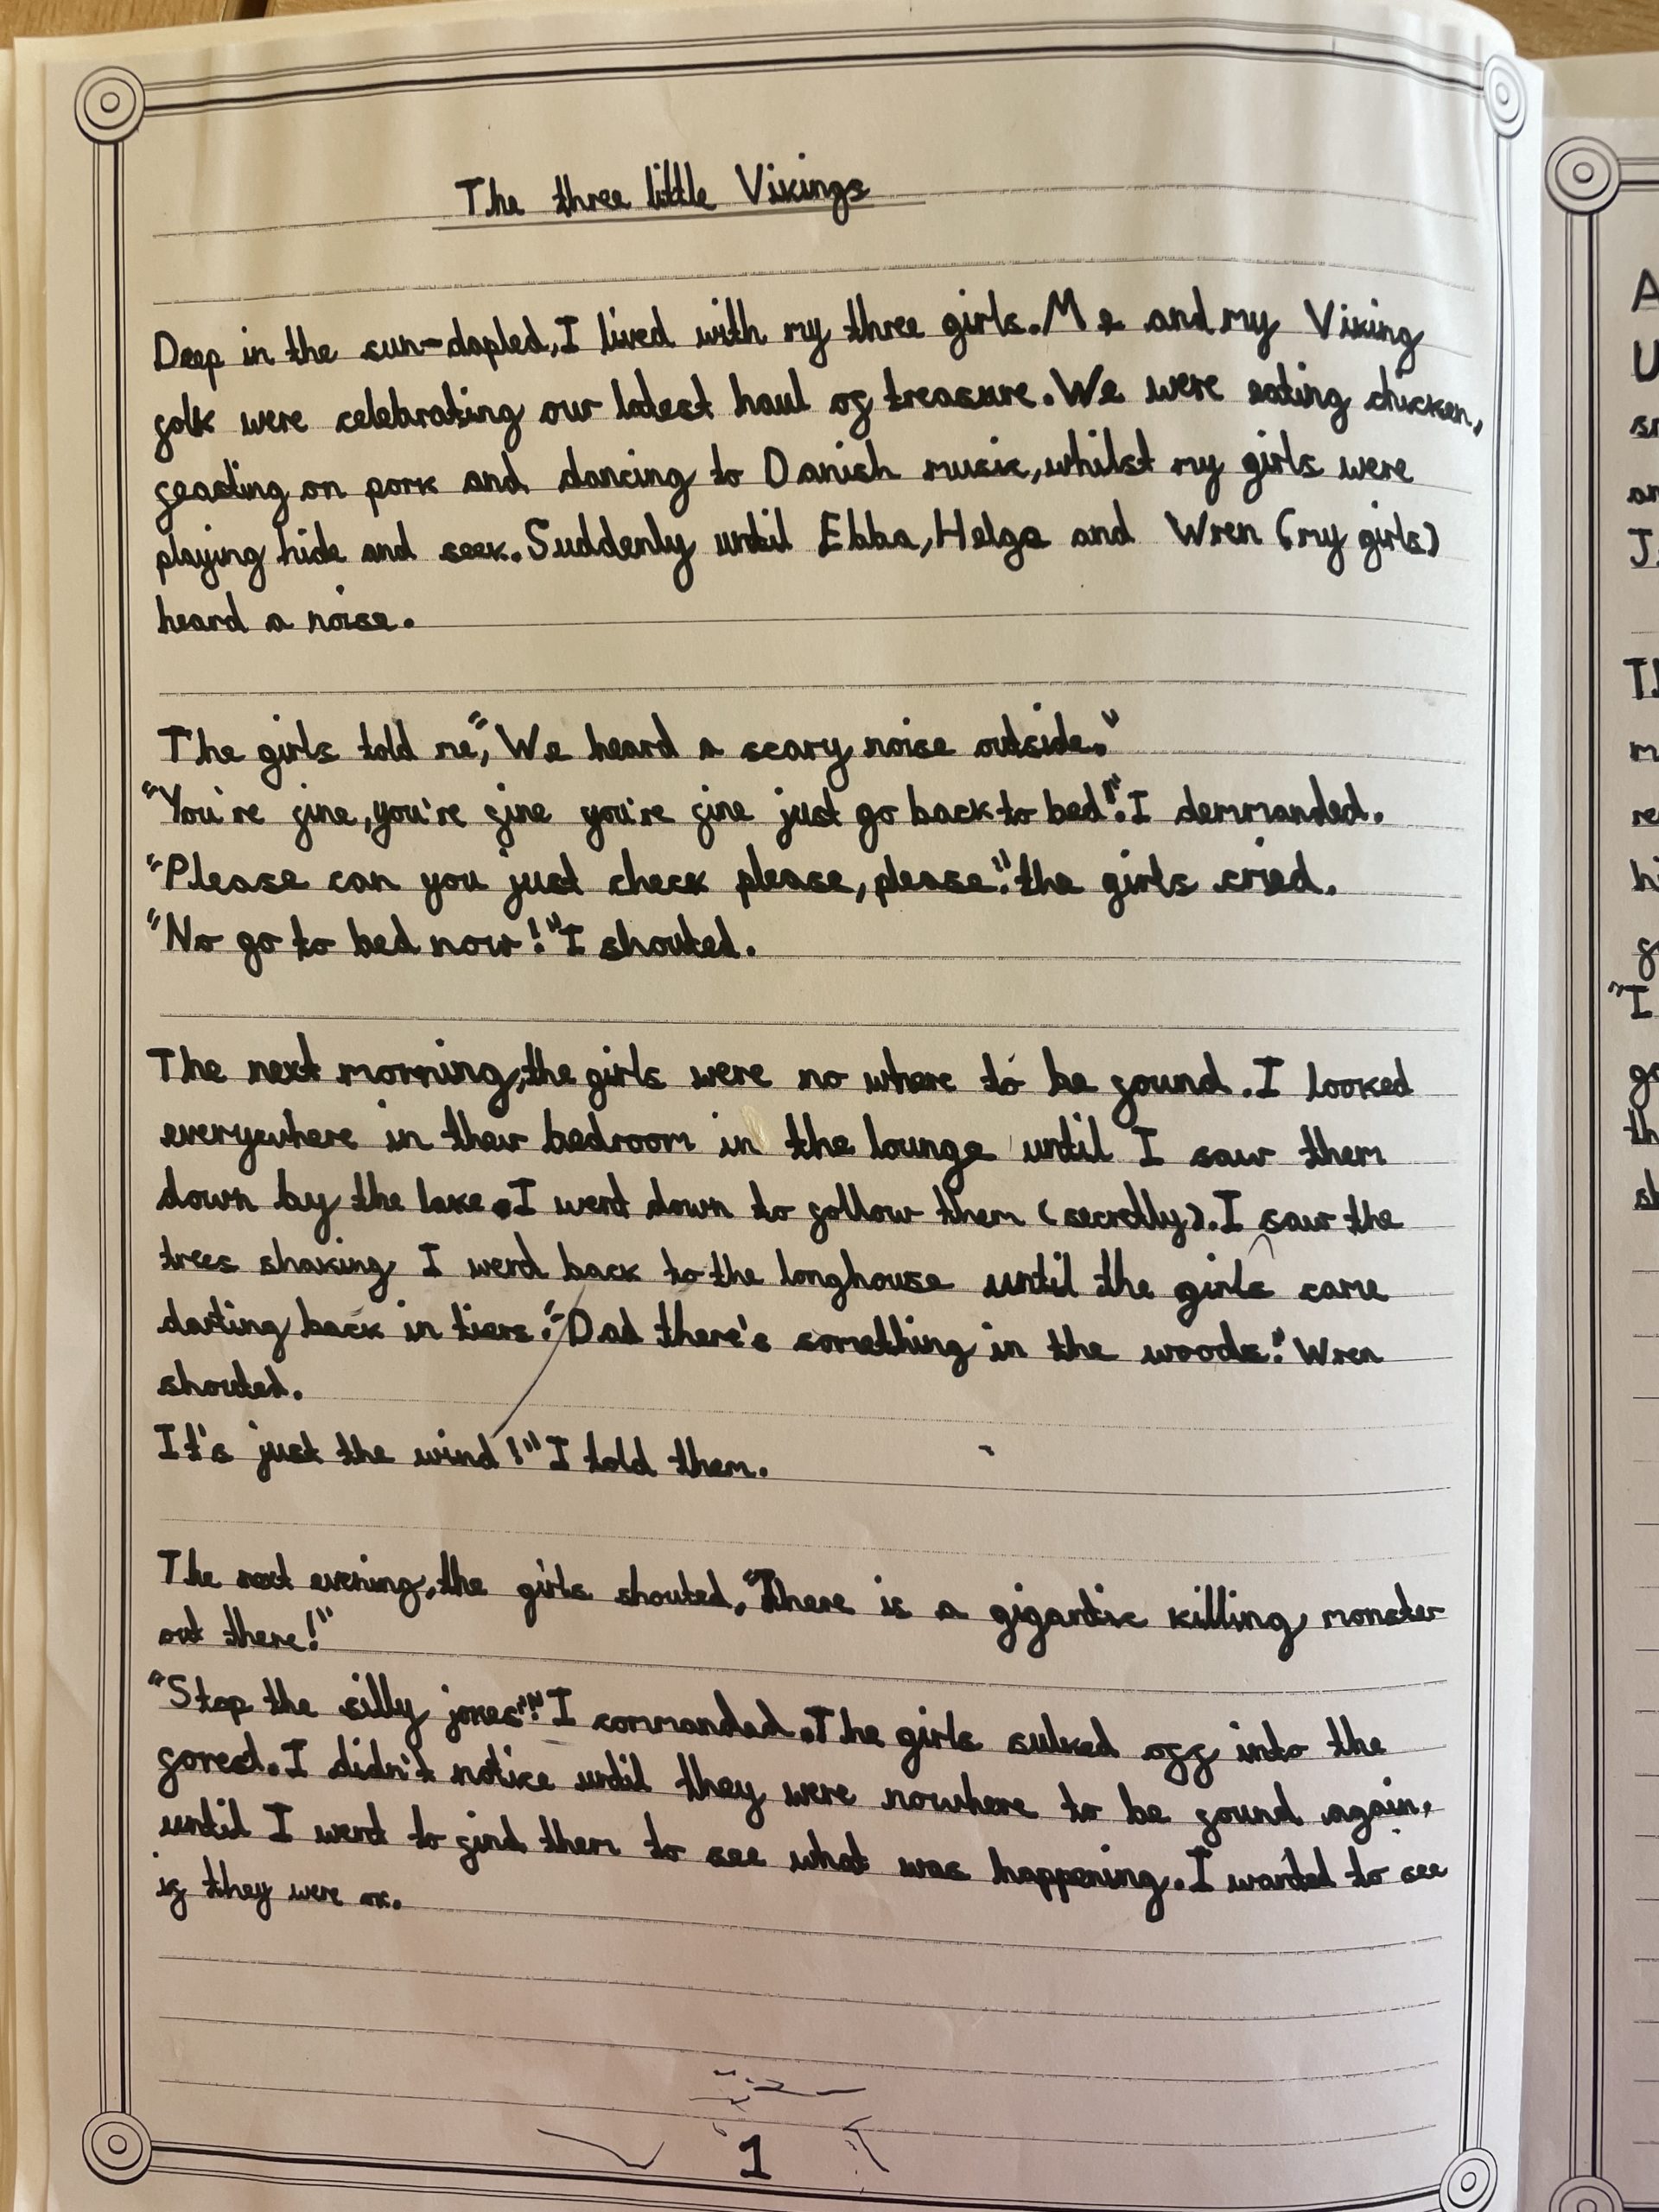 The three little Vikings
Deep in the sun-dapled, I lived with my three girls. Me and my Viking
folk were celebrating our latest haul of treasure. We were eating chicken,
feasting on pork and dancing to Danish music, whilst my girls were
playing hide and seek. Suddenly until Ebba, Helga and Wren (my girls)
heard a noise.
The girls told me, "We heard a scary noise outside."
"You're fine, you're fine you're fine just go back to bed!" I demmanded.
"Please can you just check please, please!" the girls cried.
"No go to bed now!" I shouted.
The next morning, the girls were no where to be found. I looked
everywhere in their bedroom in the lounge until I saw them
down by the lake. I went down to follow them (secretly). I saw the
trees shaking I went back to the longhouse until the girls came
darting back in tiers. "Dad there's something in the woods." Wren
shouted.
It's just the wind!" I told them.
The next evening, the girls shouted, "There is a gigantic killing monster
out there!"
"Stop the silly jokes!" I commanded. The girls sulked off into the
forest. I didn't notice until they were nowhere to be found again,
until I went to find them to see what was happening. I wanted to see
if they were ok.
1
A
U
J
m
re
hi
"I
go
th
sh